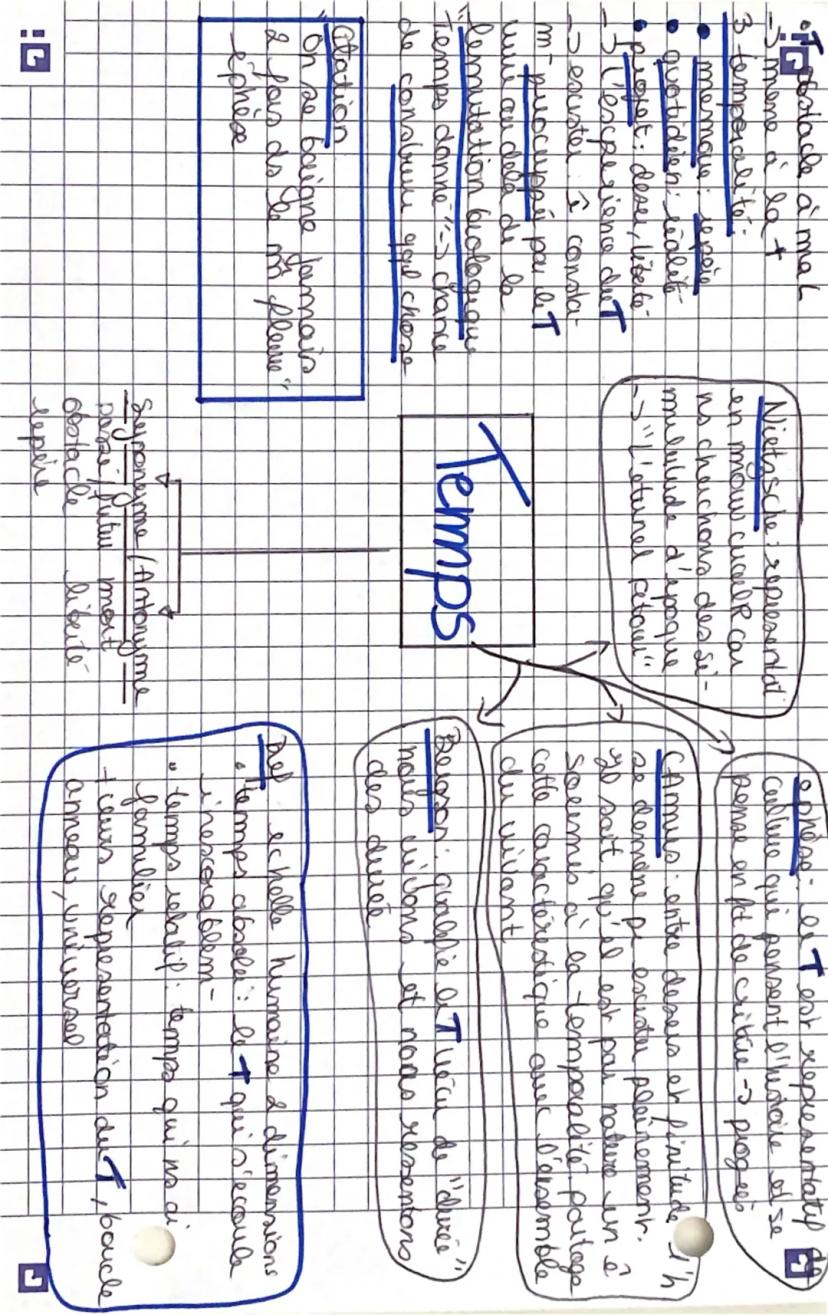 T obstacle à mal
-> mène à la +
3 temporalité:
• memoire: repère
• quotidien: réalité
• projet: desir, liberté
-> L'experience du T
-> exister: ê consta-
m- préocuppé par le T
au dela de la
"lemutation biologique
Temps donné" -> chance
de construire qql chose
Citation
"On se baigne jamais
2 fois ds le m̂ fleuve"
éphèse
Nietzsche: représentat°
en mouv cruel car
ns cherchons des si-
militude d'époque
-> "L'éternel retour"
Temps
Synonyme / Antonyme
passé / futur mort
obstacle liberté
repère
éphèse: le T est représentatif de
culture qui pensent l'histoire et se
pense en ft de critère -> progrès
CAmus: entre desirs et finitude l'h
se demène pr exister pleinement.
Il sait qu'il est par nature un ê
soumis à la temporalité, partage
cette caractéristique avec l'ensemble
du vivant
Bergson: qualifie le T vécu de "durée"
nous vivons et nous resentons
des durée
Def: echelle humaine 2 dimensions
• temps absolu: le T qui s'écoule
inexorablem-
• temps relatif: temps qui ns ai
familier
+ieurs representation du T, boucle
anneau, universel